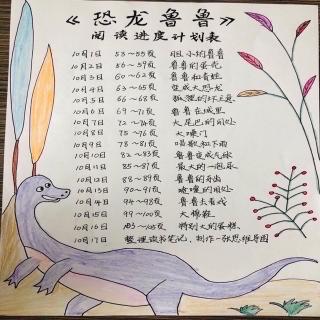 《恐龙鲁鲁》
阅读进度计划表
10月1日 53—55页 胆小的鲁鲁
10月2日 56—59页 鲁鲁的蛋壳
10月3日 60—62页 鲁鲁和青蛙
10月4日 63—65页 变成大恐龙
10月5日 66—68页 狐狸的坏主意
10月6日 69—71页 鲁鲁在城里
10月7日 72—74页 大尾巴的用处
10月8日 75—76页 大嗓门
10月9日 78—81页 唱歌和下雨
10月10日 82—83页 鲁鲁变成气球
10月11日 85—87页 最大的一座
10月12日 88—89页 鲁鲁的牙齿
10月13日 90—91页 喷嚏的用处
10月14日 94—98页 鲁鲁去看戏
10月15日 99—100页 大棉鞋
10月16日 103—105页 特别大的蛋糕
10月17日 整理读书笔记，制作一张思维导图